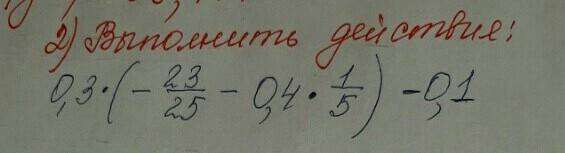 2) Выполнить действия:
0,3·(-23/25 - 0,4·1/5) -0,1